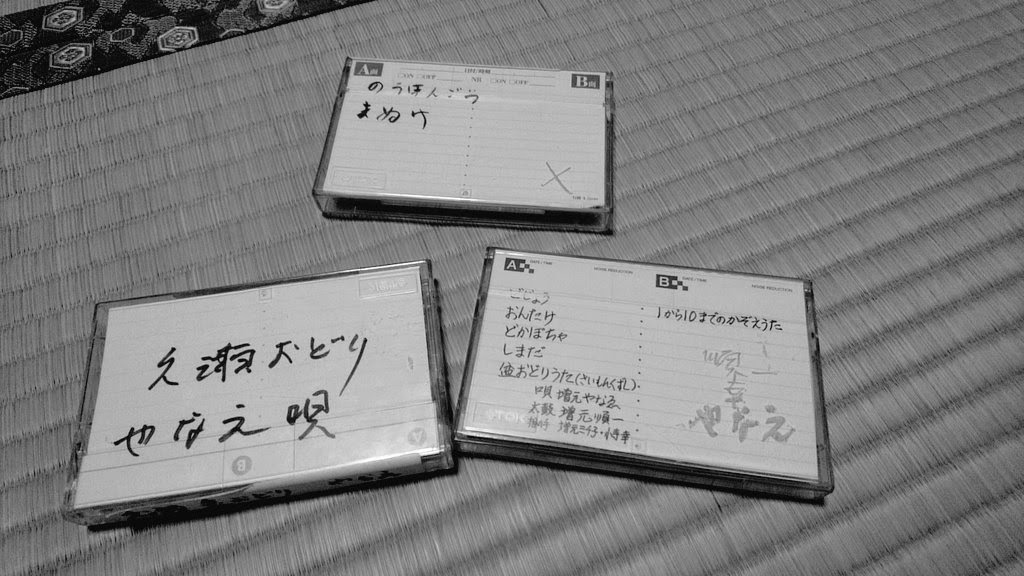 A面 日付/時間 B面
□ON □OFF NR □ON □OFF
のうほんごう
まぬけ
久瀬おどり
やなえ唄
A DATE/TIME NOISE REDUCTION
どじょう
おんたけ
どかぼちゃ
しまだ
盆おどりうた(さいもんくずし)
唄 増元やなゑ
太鼓 増元順一
B DATE/TIME NOISE REDUCTION
1から10までのかぞえうた
やなえ